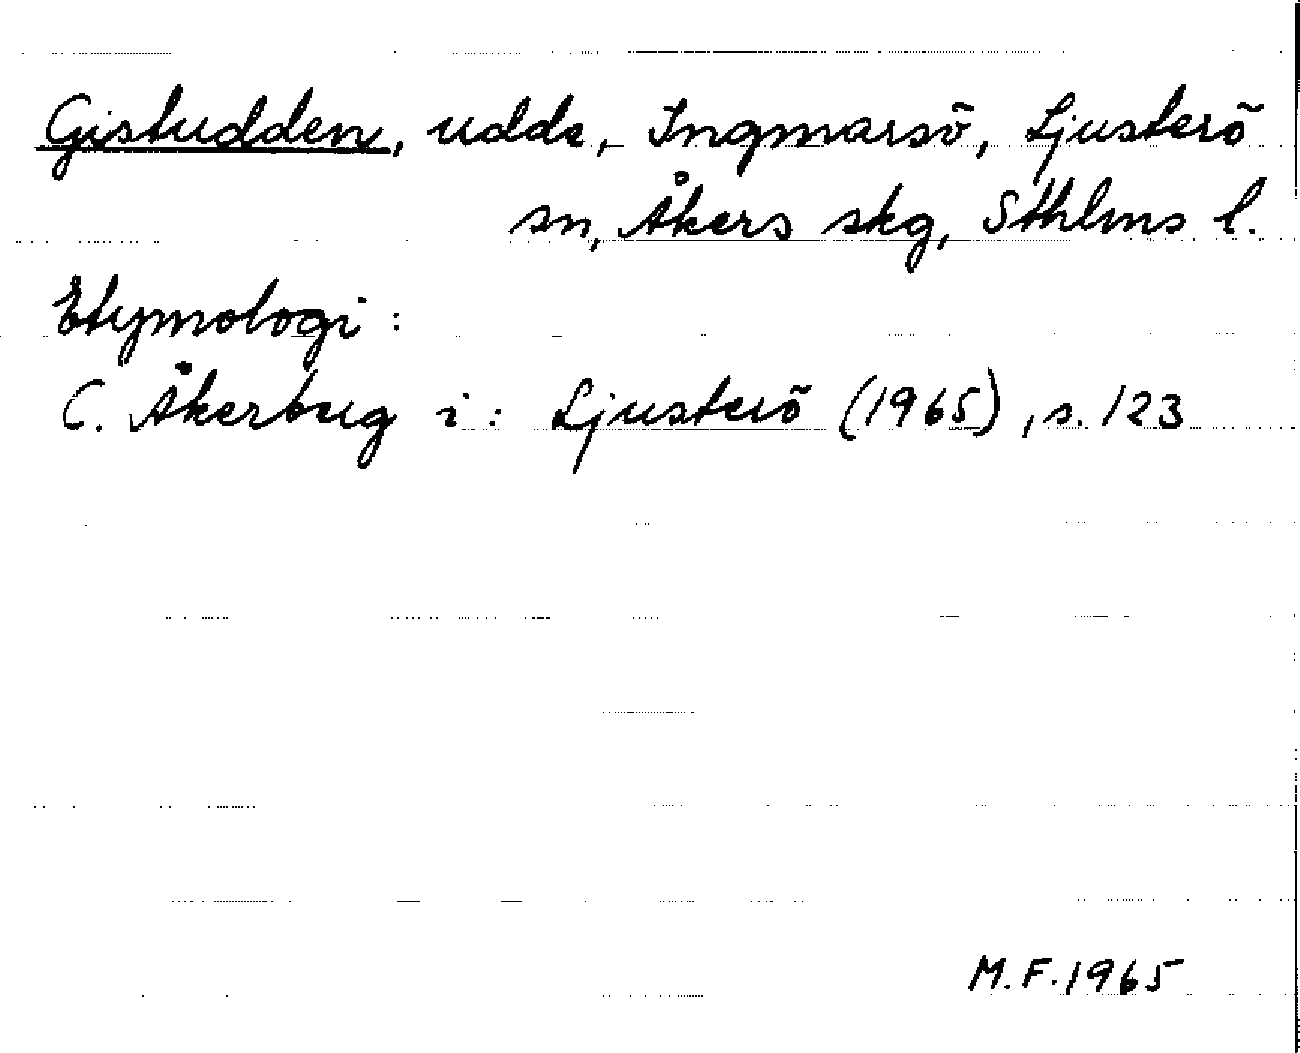 Gistudden, udde, Ingmarsö, Ljusterö
sn, Åkers skg, Sthlms l.
Etymologi:
C. Åkerberg i: Ljusterö (1965), s. 123
M.F. 1965